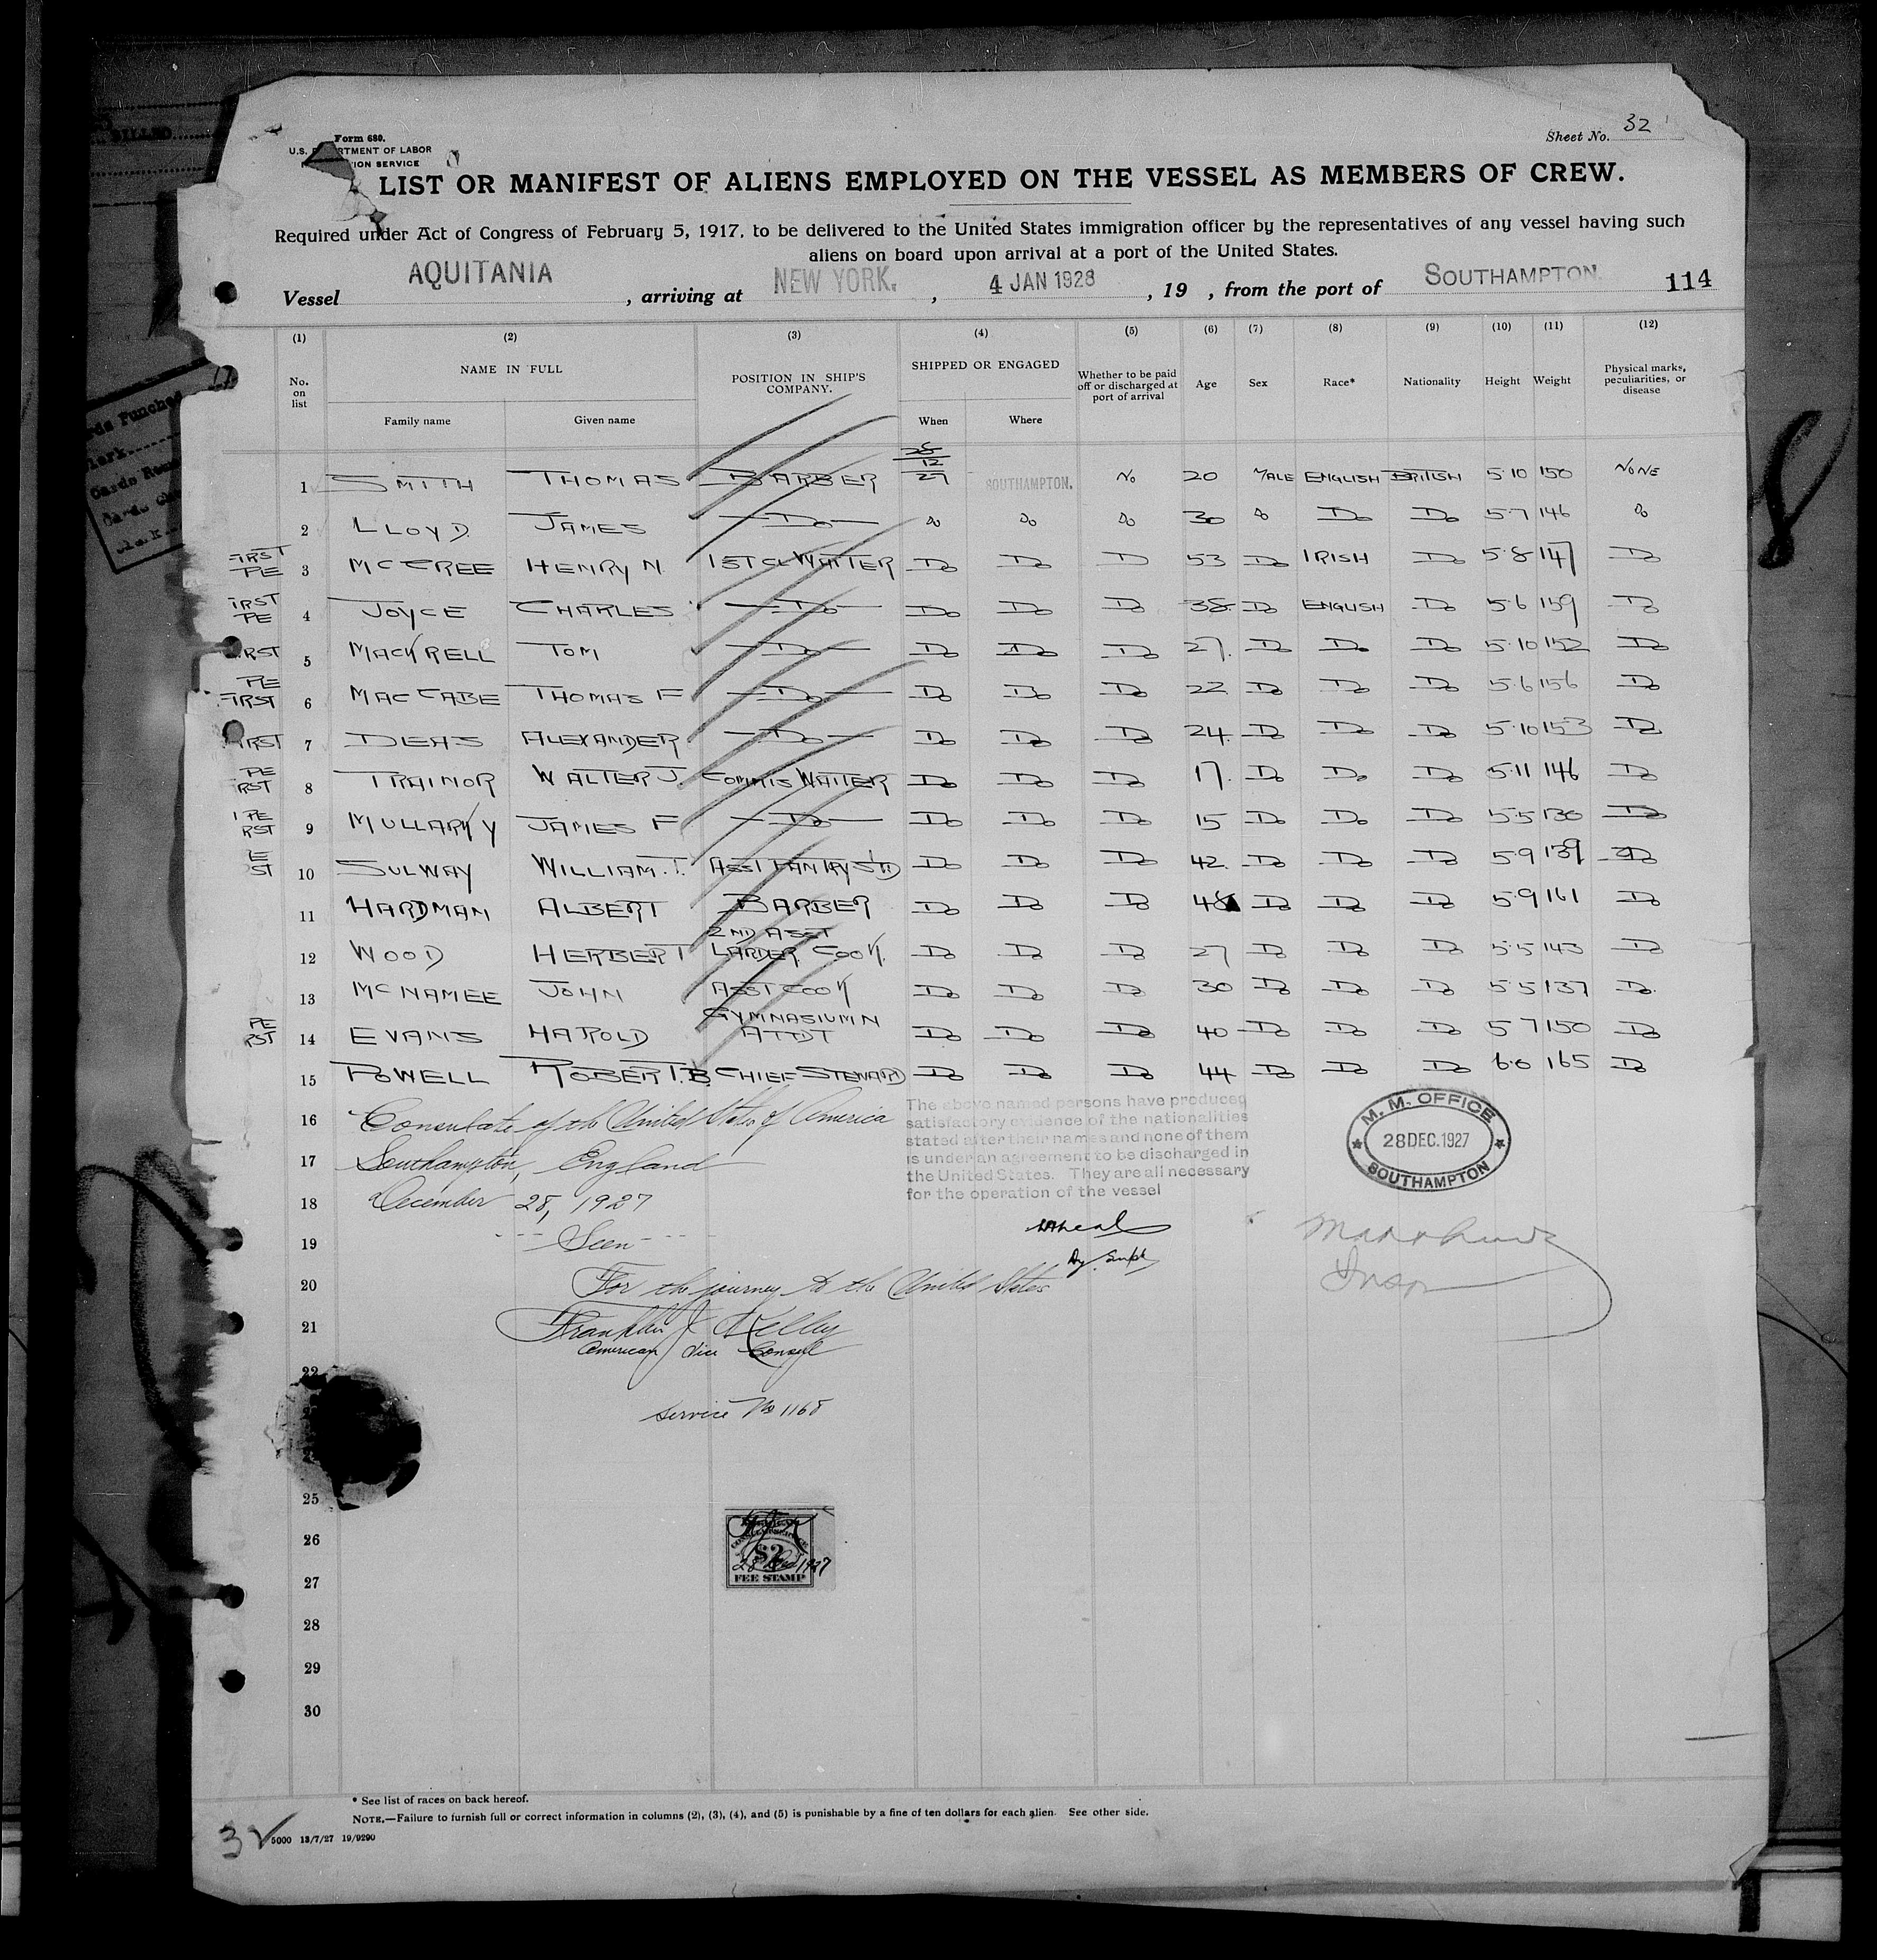 Form 680.
U.S. DEPARTMENT OF LABOR
SERVICE
Sheet No. 32
LIST OR MANIFEST OF ALIENS EMPLOYED ON THE VESSEL AS MEMBERS OF CREW.
Required under Act of Congress of February 5, 1917, to be delivered to the United States immigration officer by the representatives of any vessel having such
aliens on board upon arrival at a port of the United States.
Vessel AQUITANIA, arriving at NEW YORK, 4 JAN 1928, 19 , from the port of SOUTHAMPTON. 114
(1) (2) (3) (4) (5) (6) (7) (8) (9) (10) (11) (12)
No. on list NAME IN FULL POSITION IN SHIP'S COMPANY. SHIPPED OR ENGAGED Whether to be paid off or discharged at port of arrival Age Sex Race* Nationality Height Weight Physical marks, peculiarities, or disease
Family name Given name When Where
1 SMITH THOMAS BARBER 28/12/27 SOUTHAMPTON. No 20 MALE ENGLISH BRITISH 5·10 150 NONE
2 LLOYD JAMES —Do— Do Do Do 30 Do Do Do 5·7 146 Do
FIRST PE 3 McCREE HENRY N. 1ST CL WAITER Do Do D 53 Do IRISH Do 5·8 147 Do
IRST PE 4 JOYCE CHARLES —Do— Do Do Do 38 Do ENGLISH Do 5·6 159 Do
IRST 5 MACKRELL TOM —Do— Do Do Do 27. Do Do Do 5·10 152 Do
PE FIRST 6 MACCABE THOMAS F —Do— Do Do Do 22 Do Do Do 5·6 156 Do
IRST 7 DEAS ALEXANDER —Do— Do Do Do 24. Do Do Do 5·10 153 Do
PE RST 8 TRAINOR WALTER J. COMMIS WAITER Do Do Do 17. Do Do Do 5·11 146 Do
PE RST 9 MULLARKY JAMES F —Do— Do Do Do 15 Do Do Do 5·5 130 Do
E ST 10 SULWAY WILLIAM. T. ASST PANTRY STD Do Do Do 42. Do Do Do 5·9 139 Do
11 HARDMAN ALBERT BARBER Do Do Do 48 Do Do Do 5·9 161 Do
12 WOOD HERBERT 2ND ASST LARDER COOK. Do Do Do 27 Do Do Do 5·5 143 Do
13 McNAMEE JOHN ASST COOK Do Do Do 30 Do Do Do 5·5 137 Do.
PE RST 14 EVANS HAROLD GYMNASIUM N ATTDT Do Do Do 40 Do Do Do 5 7 150 Do
15 POWELL ROBERT. B CHIEF STEWARD Do Do Do 44 Do Do Do 6·0 165 Do
16 Consulate of the United States of America
17 Southampton, England
18 December 28, 1927
19 ---Seen---
20 For the journey to the United States
21 Franklin J Kelly
American Vice Consul
22
Service No 1168
The above named persons have produced
satisfactory evidence of the nationalities
stated after their names and none of them
is under an agreement to be discharged in
the United States. They are all necessary
for the operation of the vessel
Dy. Supt
M. M. OFFICE
28 DEC. 1927
SOUTHAMPTON
25
26
27
$2
28 Dec 1927
FEE STAMP
28
29
30
* See list of races on back hereof.
NOTE.—Failure to furnish full or correct information in columns (2), (3), (4), and (5) is punishable by a fine of ten dollars for each alien. See other side.
5000 13/7/27 19/9290